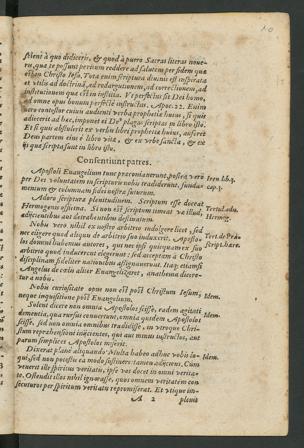 sciens à quo didiceris, & quod à puero Sacras literas noue-
ris, quæ te possunt peritum reddere ad salutem per fidem quæ
est in Christo Iesu. Tota enim scriptura diuinis est inspirata
et vtilis ad doctrinã, ad redargutionem, ad correctionem, ad
institutionem quæ est in iustitia. Vt perfectus sit Dei homo,
ad omne opus bonum perfectè instructus. Apoc. 22. Enim
uero contestor cuiuis audienti verba prophetiæ huius, si quis
adiecerit ad hæc, imponet ei Deꝰ plagas scriptas in libro isto.
Et si quis abstulerit ex verbis libri prophetiæ huius, auferet
Deus partem eius è libro vitæ, & ex vrbe sancta, & ex
iis quæ scripta sunt in libro isto.
Consentiunt patres.
Apostoli Euangelium tunc præconiauerunt, postea verò
per Dei voluntatem in scripturis nobis tradiderunt, funda-
mentum & columnam fidei nostræ futuram.
Iren lib.3.
cap.1.
Adoro scripturæ plenitudinem. Scriptum esse doceat
Hermogenis officina. Si non est scriptum timeat væ illud,
adiicientibus aut detrahentibus destinatum.
Tertul. adu.
Hermog.
Nobis vero nihil ex nostro arbitrio indulgere licet, sed
nec eligere quod aliquis de arbitrio suo induxerit. Aposto-
los domini habemus autores, qui nec ipsi quicquam ex suo
arbitrio quod inducerent elegerunt: sed acceptam à Christo
disciplinam fideliter nationibus assignauerunt. Itaq; etiamsi
Angelus de cælis aliter Euangelizaret, anathema dicere-
tur a nobis.
Tert. de Præ
script. hær.
Nobis curiositate opus non est post Christum Iesum,
neque inquisitione post Euangelium.
Idem.
Solent dicere non omnia Apostolos scisse, eadem agitati
dementia, qua rursus conuertunt, omnia quidem Apostolos
scisse, sed non omnia omnibus tradidisse, in vtroque Chri-
stum reprehensioni iniicientes, qui aut minus instructos, aut
parum simplices Apostolos miserit.
Idem.
Dixerat planè aliquando Multa habeo adhuc vobis lo-
qui, sed non potestis ea modo sustinere: tamen adiiciens, Cum
venerit ille spiritus veritatis, ipse vos docet in omni verita-
te. Ostendit illos nihil ignorasse, quos omnem veritatem con
secuturos per spiritum veritatis repromiserat. Et vtique im-
Idem.
A 2 pleuit